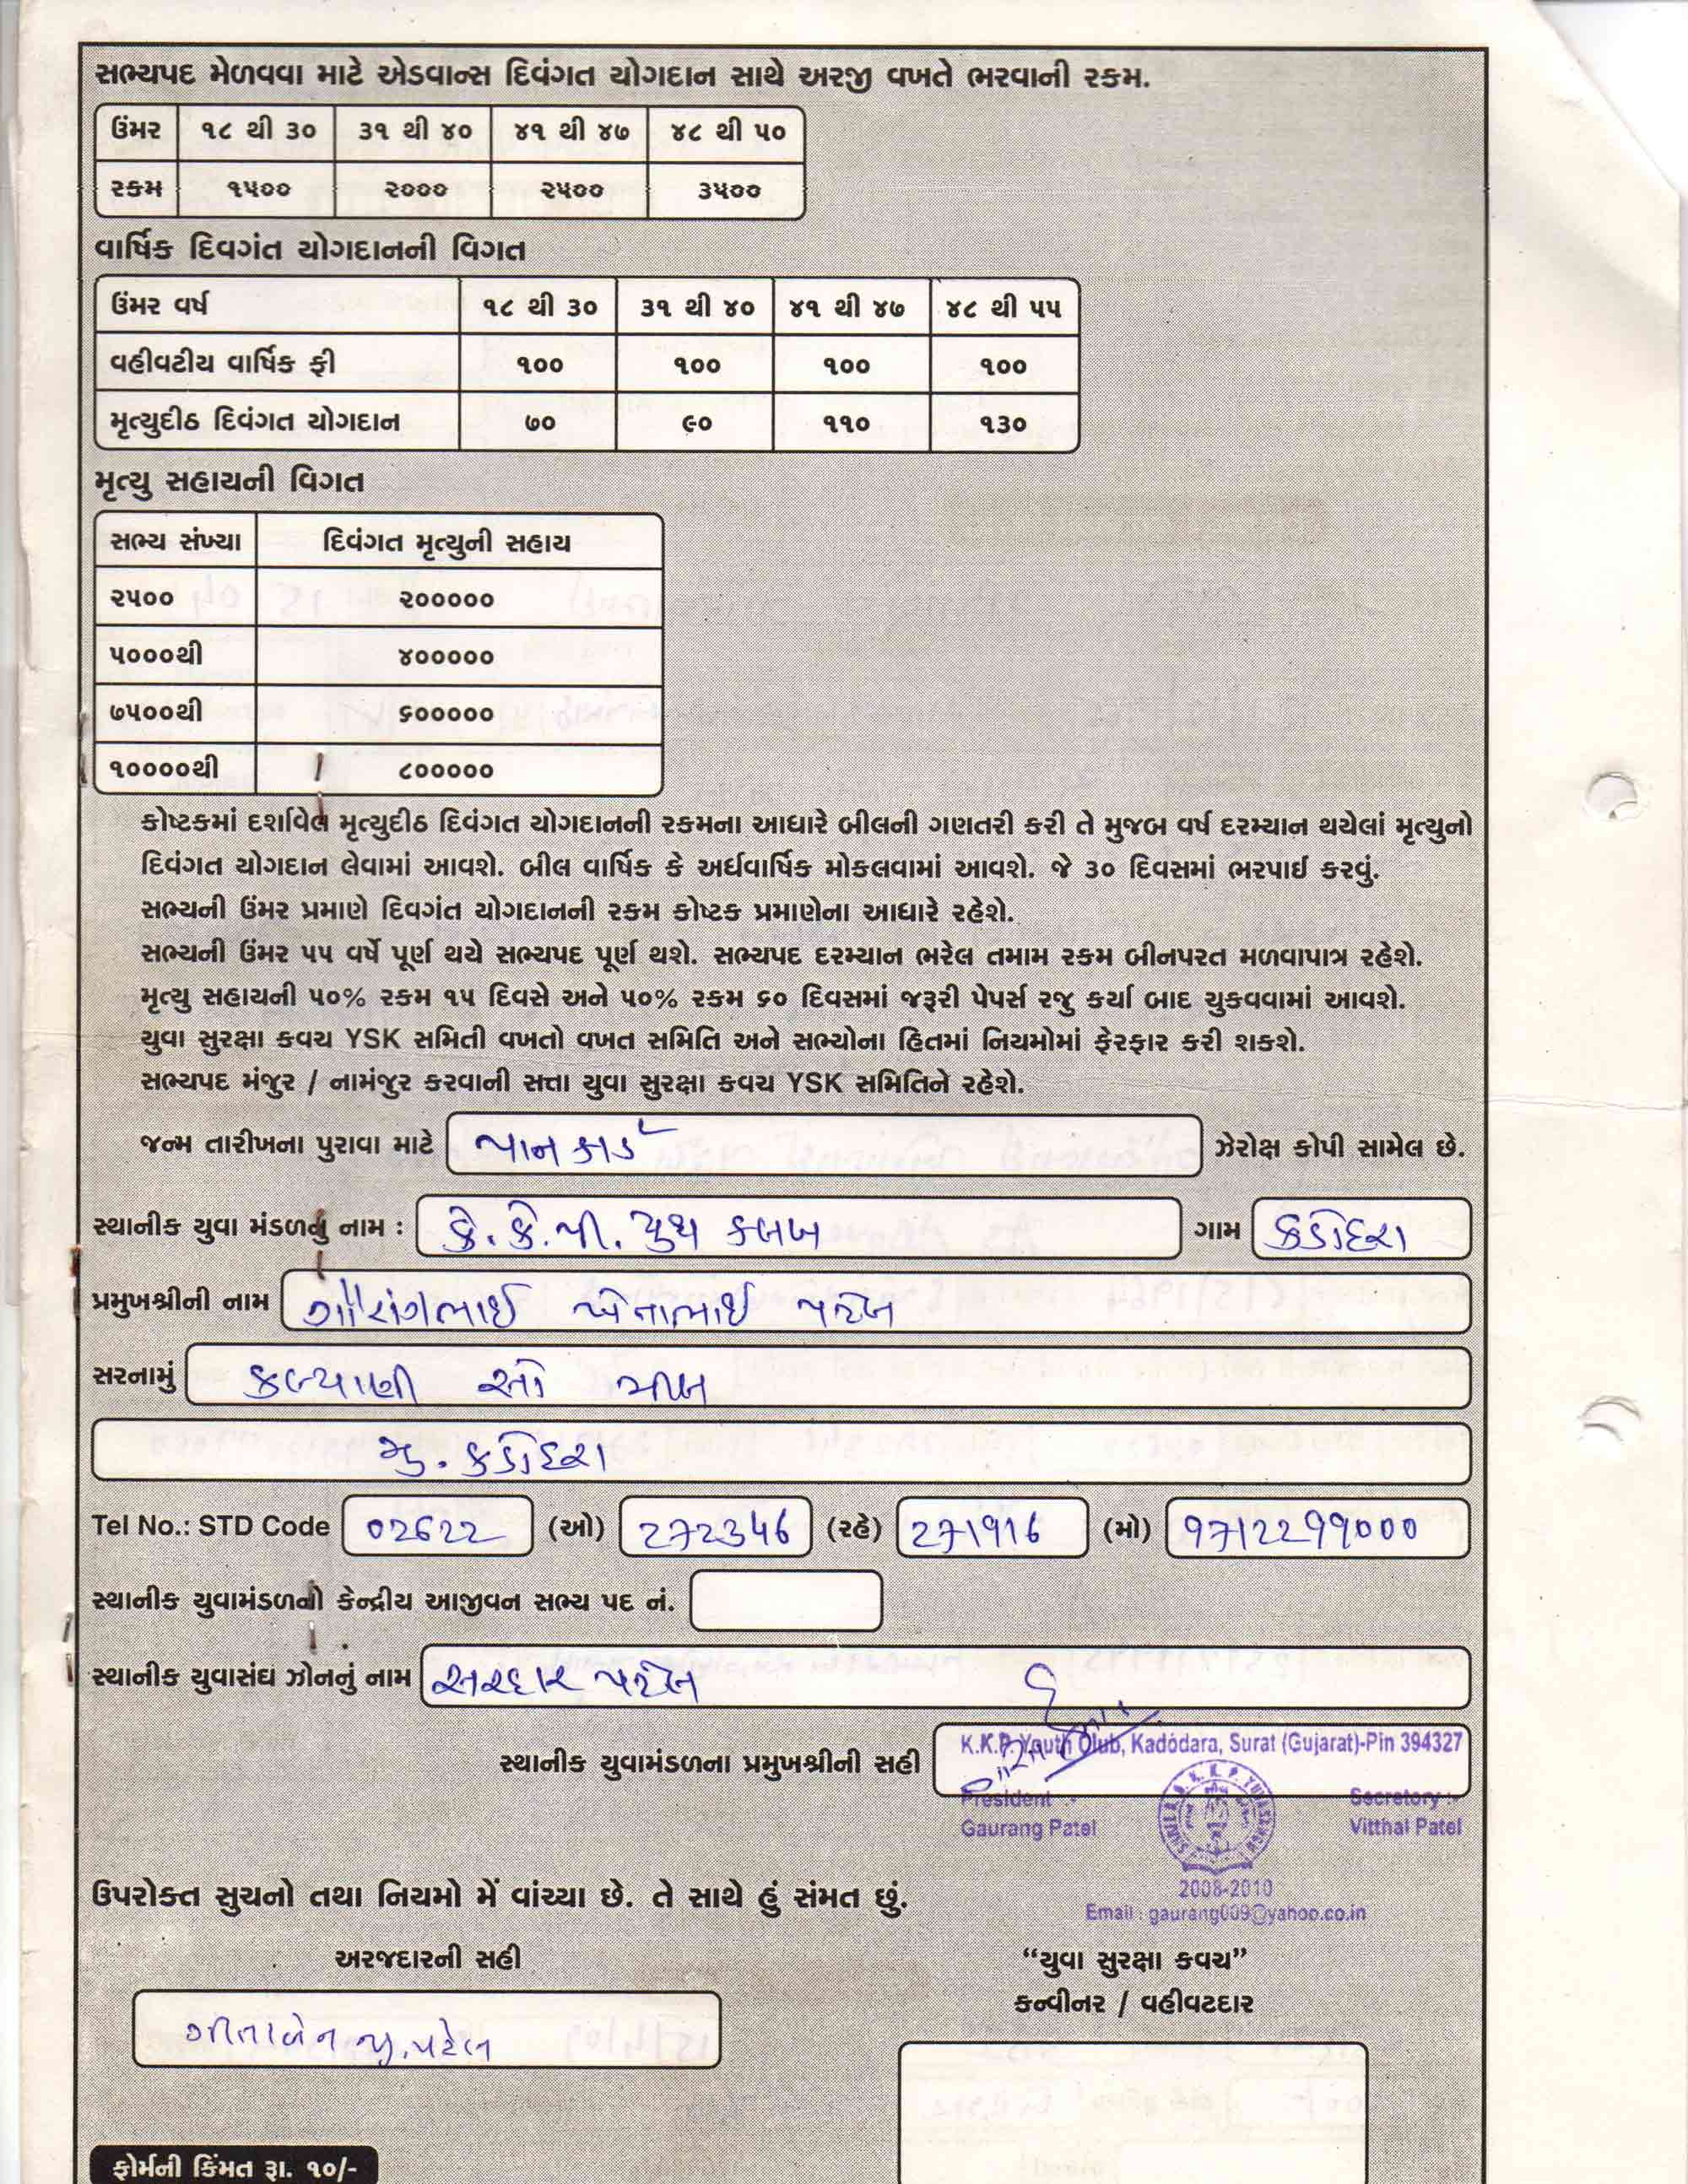 સભ્યપદ મેળવવા માટે એડવાન્સ દિવંગત યોગદાન સાથે અરજી વખતે ભરવાની રકમ.
ઉંમર ૧૮ થી ૩૦ ૩૧ થી ૪૦ ૪૧ થી ૪૭ ૪૮ થી ૫૦
રકમ ૧૫૦૦ ૨૦૦૦ ૨૫૦૦ ૩૫૦૦
વાર્ષિક દિવગંત યોગદાનની વિગત
ઉંમર વર્ષ ૧૮ થી ૩૦ ૩૧ થી ૪૦ ૪૧ થી ૪૭ ૪૮ થી ૫૫
વહીવટીય વાર્ષિક ફી ૧૦૦ ૧૦૦ ૧૦૦ ૧૦૦
મૃત્યુદીઠ દિવંગત યોગદાન ૭૦ ૯૦ ૧૧૦ ૧૩૦
મૃત્યુ સહાયની વિગત
સભ્ય સંખ્યા દિવંગત મૃત્યુની સહાય
૨૫૦૦ ૨૦૦૦૦૦
૫૦૦૦થી ૪૦૦૦૦૦
૭૫૦૦થી ૬૦૦૦૦૦
૧૦૦૦૦થી ૮૦૦૦૦૦
કોષ્ટકમાં દર્શાવેલ મૃત્યુદીઠ દિવંગત યોગદાનની રકમના આધારે બીલની ગણતરી કરી તે મુજબ વર્ષ દરમ્યાન થયેલાં મૃત્યુનો
દિવંગત યોગદાન લેવામાં આવશે. બીલ વાર્ષિક કે અર્ધવાર્ષિક મોકલવામાં આવશે. જે ૩૦ દિવસમાં ભરપાઈ કરવું.
સભ્યની ઉંમર પ્રમાણે દિવગંત યોગદાનની રકમ કોષ્ટક પ્રમાણેના આધારે રહેશે.
સભ્યની ઉંમર ૫૫ વર્ષે પૂર્ણ થયે સભ્યપદ પૂર્ણ થશે. સભ્યપદ દરમ્યાન ભરેલ તમામ રકમ બીનપરત મળવાપાત્ર રહેશે.
મૃત્યુ સહાયની ૫૦% રકમ ૧૫ દિવસે અને ૫૦% રકમ ૬૦ દિવસમાં જરૂરી પેપર્સ રજુ કર્યા બાદ ચુકવવામાં આવશે.
યુવા સુરક્ષા કવચ YSK સમિતી વખતો વખત સમિતિ અને સભ્યોના હિતમાં નિયમોમાં ફેરફાર કરી શકશે.
સભ્યપદ મંજુર / નામંજુર કરવાની સત્તા યુવા સુરક્ષા કવચ YSK સમિતિને રહેશે.
જન્મ તારીખના પુરાવા માટે પાન કાર્ડ ઝેરોક્ષ કોપી સામેલ છે.
સ્થાનીક યુવા મંડળનું નામ : કે. કે. પી. યુથ કલબ ગામ કડોદરા
પ્રમુખશ્રીની નામ ગૌરાંગભાઈ પટેલ
સરનામું કલ્યાણી સો મીલ
મુ. કડોદરા
Tel No.: STD Code 02622 (ઓ) 272346 (રહે) 271916 (મો) 9712299000
સ્થાનીક યુવામંડળનો કેન્દ્રીય આજીવન સભ્ય પદ નં.
સ્થાનીક યુવાસંઘ ઝોનનું નામ સરદાર પટેલ
સ્થાનીક યુવામંડળના પ્રમુખશ્રીની સહી
K.K.P. Youth Club, Kadodara, Surat (Gujarat)-Pin 394327
President :- Secretory :-
Gaurang Patel Vitthal Patel
2008-2010
Email : gaurang009@yahoo.co.in
ઉપરોક્ત સુચનો તથા નિયમો મેં વાંચ્યા છે. તે સાથે હું સંમત છું.
અરજદારની સહી
"યુવા સુરક્ષા કવચ"
કન્વીનર / વહીવટદાર
ગીતાબેન જી. પટેલ
ફોર્મની કિંમત રૂા. ૧૦/-